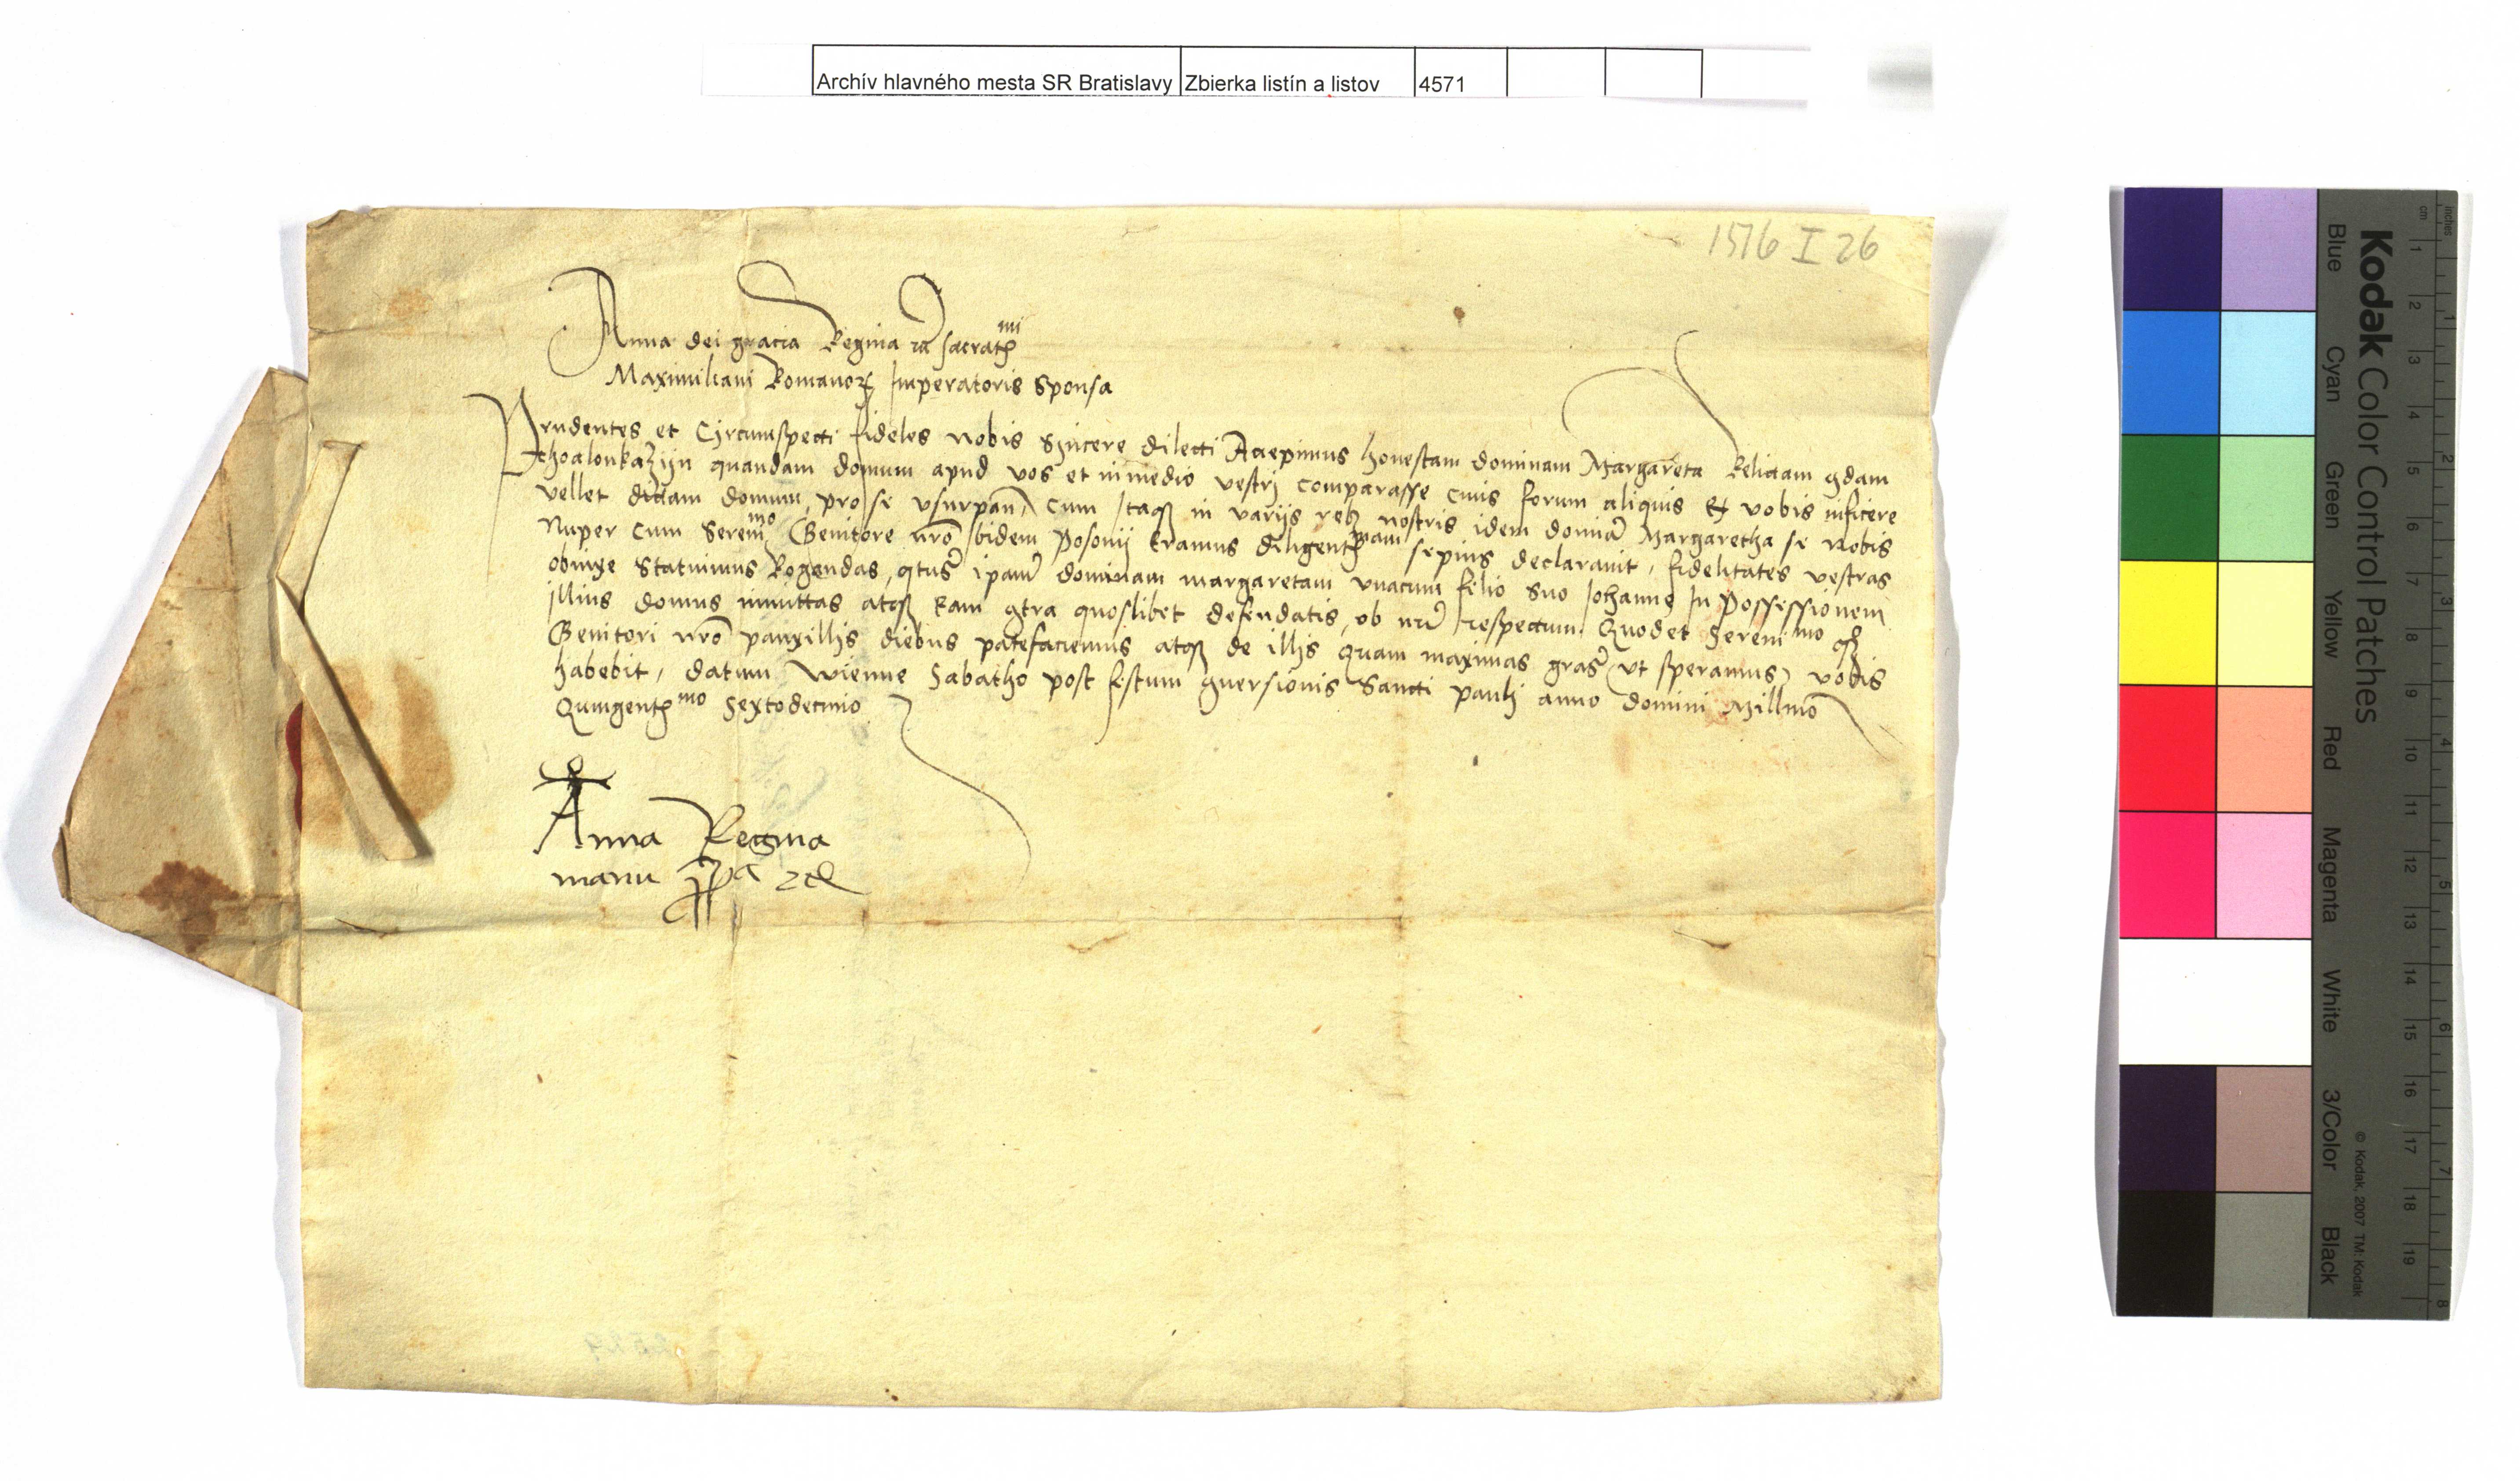 Archív hlavného mesta SR Bratislavy Zbierka listín a listov 4571
1516 I 26
Anna dei gracia Regina sacrat mi
Maximiliani Romanorꝝ Imperatoris Sponsa
Prudentes et Cÿrcumspecti fideles nobis Sÿncere dilecti Accepimus honestam dominam Margareta Relictam qdam
quandam domum apud vos et in medio vestrj comparasse cuius forum aliquis Ex vobis inficere
vellet dictam domum, pro se vsurpan, cum Itaqꝫ in varijs rebꝫ nostris idem domina Margaretha se nobis
Nuper cum Serenmo Genitore nro Ibidem Posonij Eramus diligentmam sepius declarauit, fidelitates vestras
obnixe Statuimus Rogandas, qtus ipam dominam margaretam vnacum filio Suo Iohanne In Possessionem
Illius domus inmittas atqꝫ Eam qtra quoslibet defendatis, ob nrm respectum Quod et Sereni mo
Genitori nro pauxillis diebus patefaciemus atqꝫ de illis Quam maximas gras (vt speramus) vobis
habebit, datum Wienne Sabatho post festum quersionis Sancti pauli anno domini Millmo
Quingent mo Sextodecimo
Anna Regina
manu ppa
Kodak Color Control Patches
Blue Cyan Green Yellow Red Magenta White 3/Color Black
© Kodak, 2007 TM: Kodak
inches 1 2 3 4 5 6 7 8
cm 1 2 3 4 5 6 7 8 9 10 11 12 13 14 15 16 17 18 19